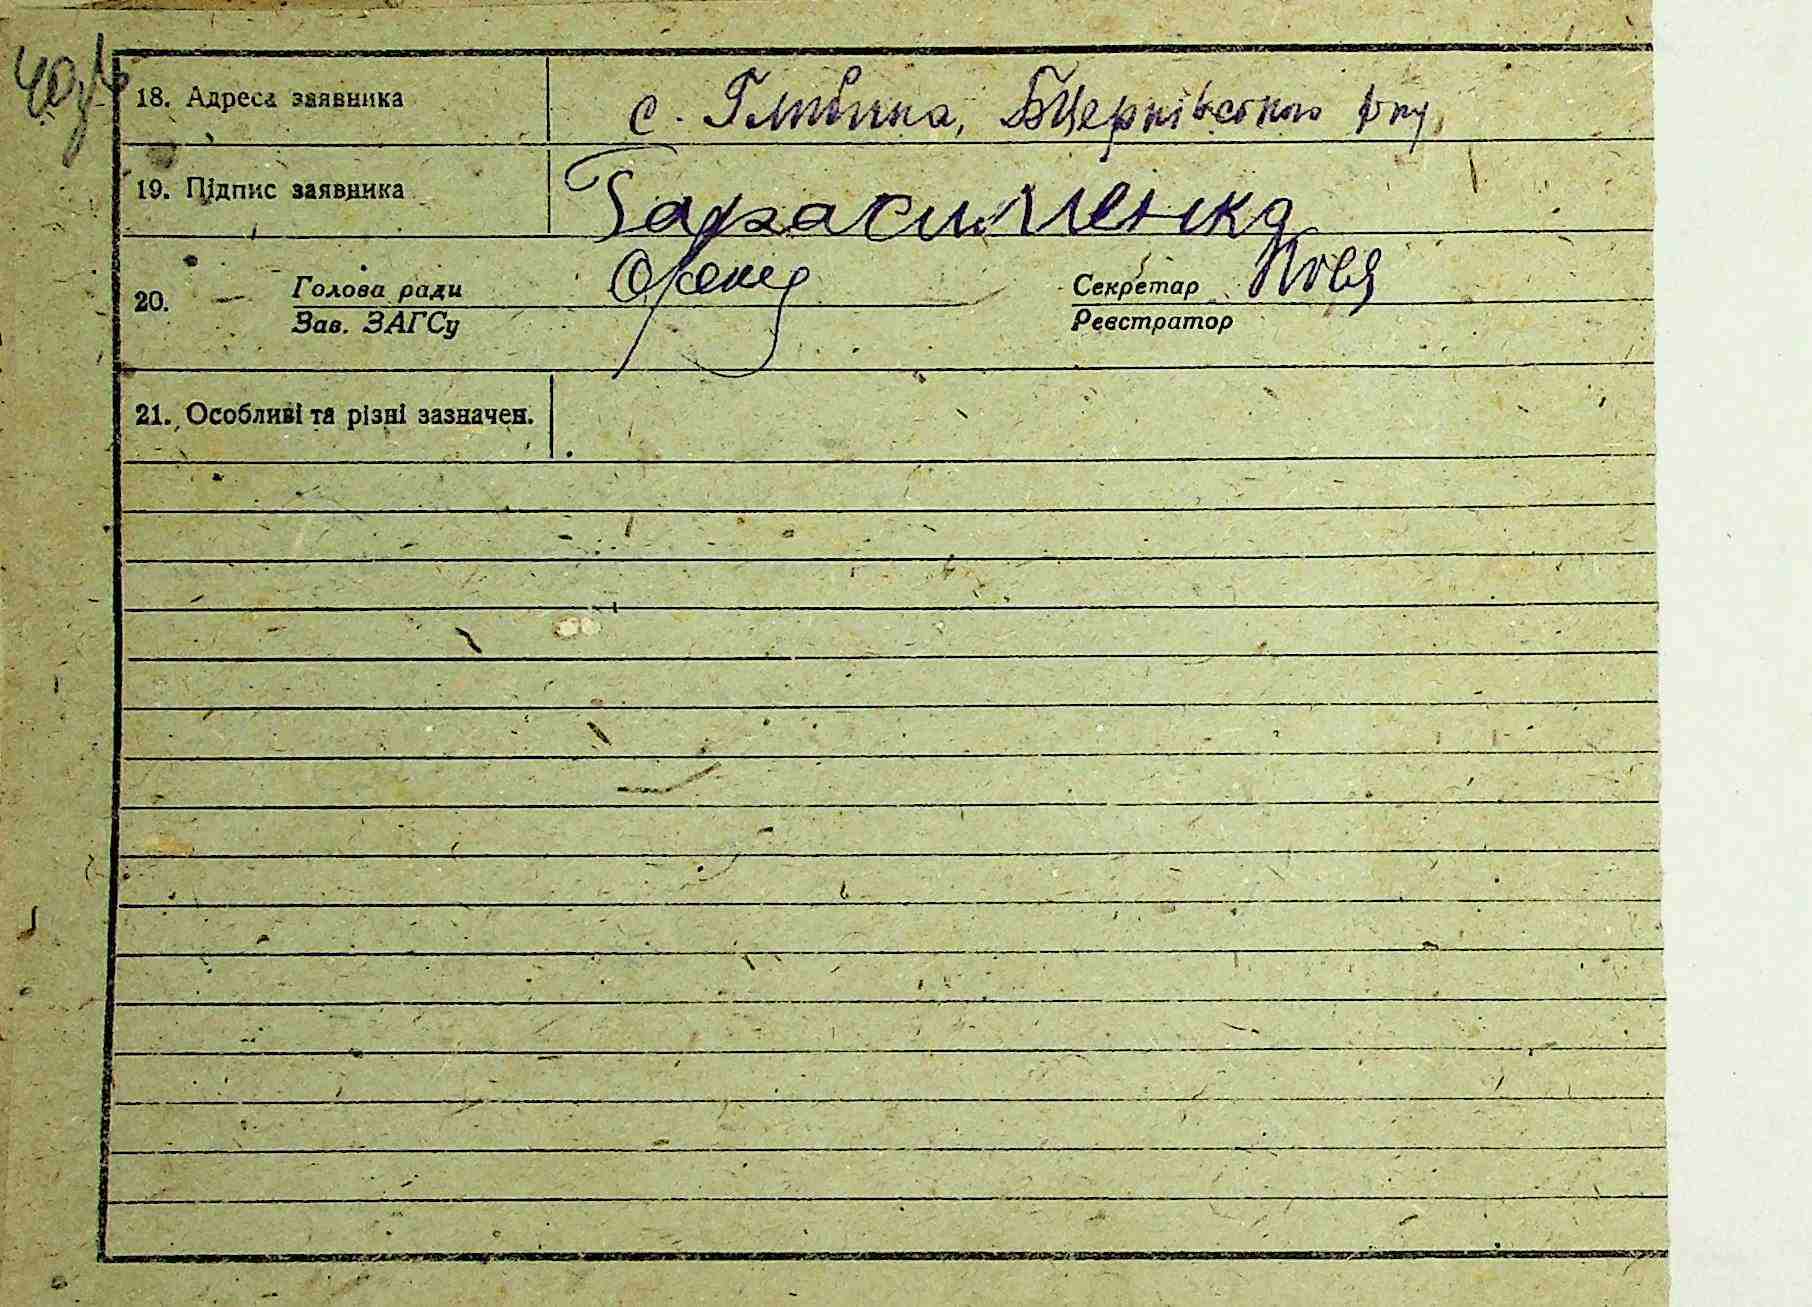 18. Адреса заявника с. Глибичка, БЦерківського р-ну
19. Підпис заявника Гарасименко
20. Голова ради Секретар
Зав. ЗАГСу Реєстратор
21. Особливі та різні зазначен.